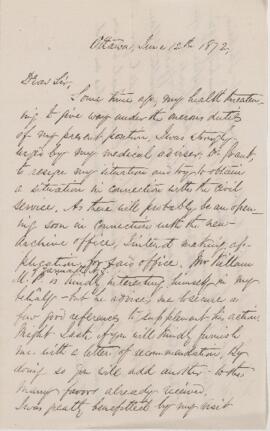 Ottawa, June 12th 1872,
Dear Sir,
Some time ago, my health threaten-
ing to give way under the onerous duties
of my present position, I was strongly
urged by my medical adviser, Dr. Grant,
to resign my situation and try to obtain
a situation in connection with the Civil
Service. As there will probably be an open-
ing soon in connection with the new
office, I intend making ap-
plication for said office. Mr
M.P. is kindly interesting himself in my
behalf - but he advises me to secure a
few good references to supplement his action.
Might I ask if you will kindly furnish
me with a letter of recommendation. By
doing so you will add another to the
many favors already received.
I was greatly benefitted by my visit